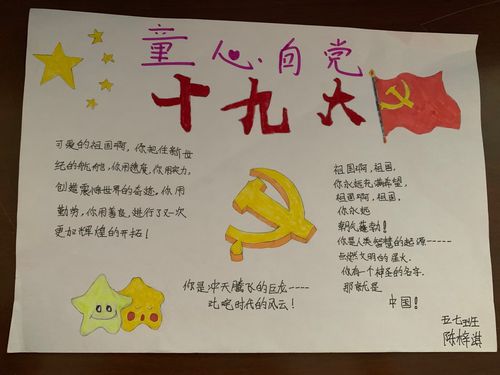 童心·向党
十九大
可爱的祖国啊，你把住新世
纪的航舵，你用速度，你用实力，
创造震惊世界的奇迹，你用
勤劳，你用善良，进行了又一次
更加辉煌的开拓！
祖国啊，祖国，
你永远充满希望，
祖国啊，祖国，
你永远
朝气蓬勃！
你是人类智慧的起源-----
点燃文明的星火。
你有一个神圣的名字，
那就是
中国！
你是冲天腾飞的巨龙----
叱咤时代的风云！
五七班
陈梓淇